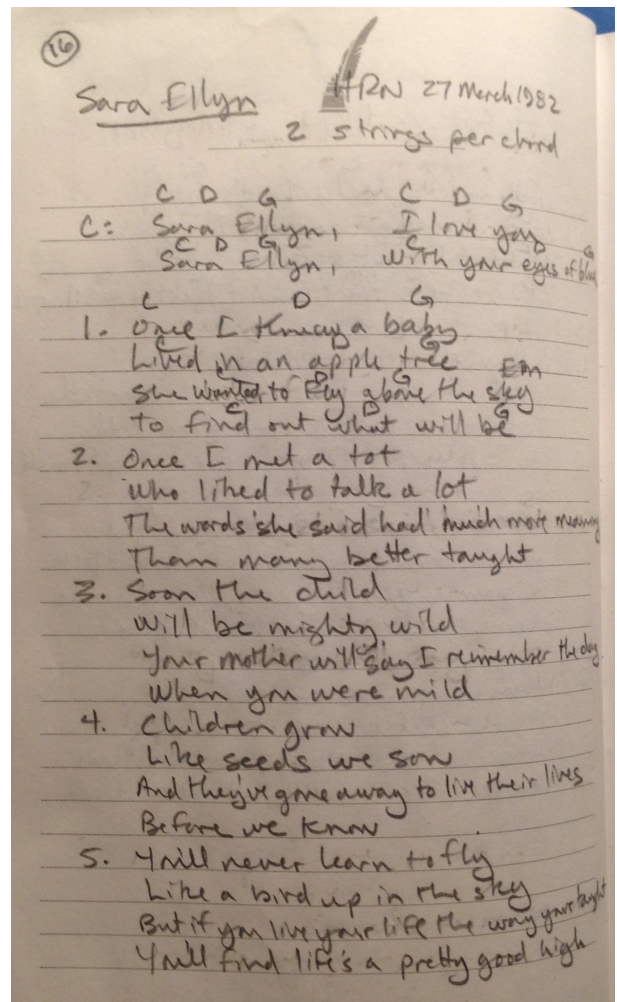 16
Sara Ellyn HRN 27 March 1982
2 strings per chord
C D G C D G
C: Sara Ellyn, I love you
C D G C D G
Sara Ellyn, with your eyes of blue
C D G
1. Once I knew a baby
C D G
Lived in an apple tree
C D G Em
She wanted to fly above the sky
C D G
to find out what will be
2. Once I met a tot
who liked to talk a lot
The words she said had much more meaning
Than many better taught
3. Soon the child
will be mighty wild
Your mother will say I remember the day
When you were mild
4. Children grow
Like seeds we sow
And they've gone away to live their lives
Before we know
5. You'll never learn to fly
Like a bird up in the sky
But if you live your life the way your taught
You'll find life's a pretty good high